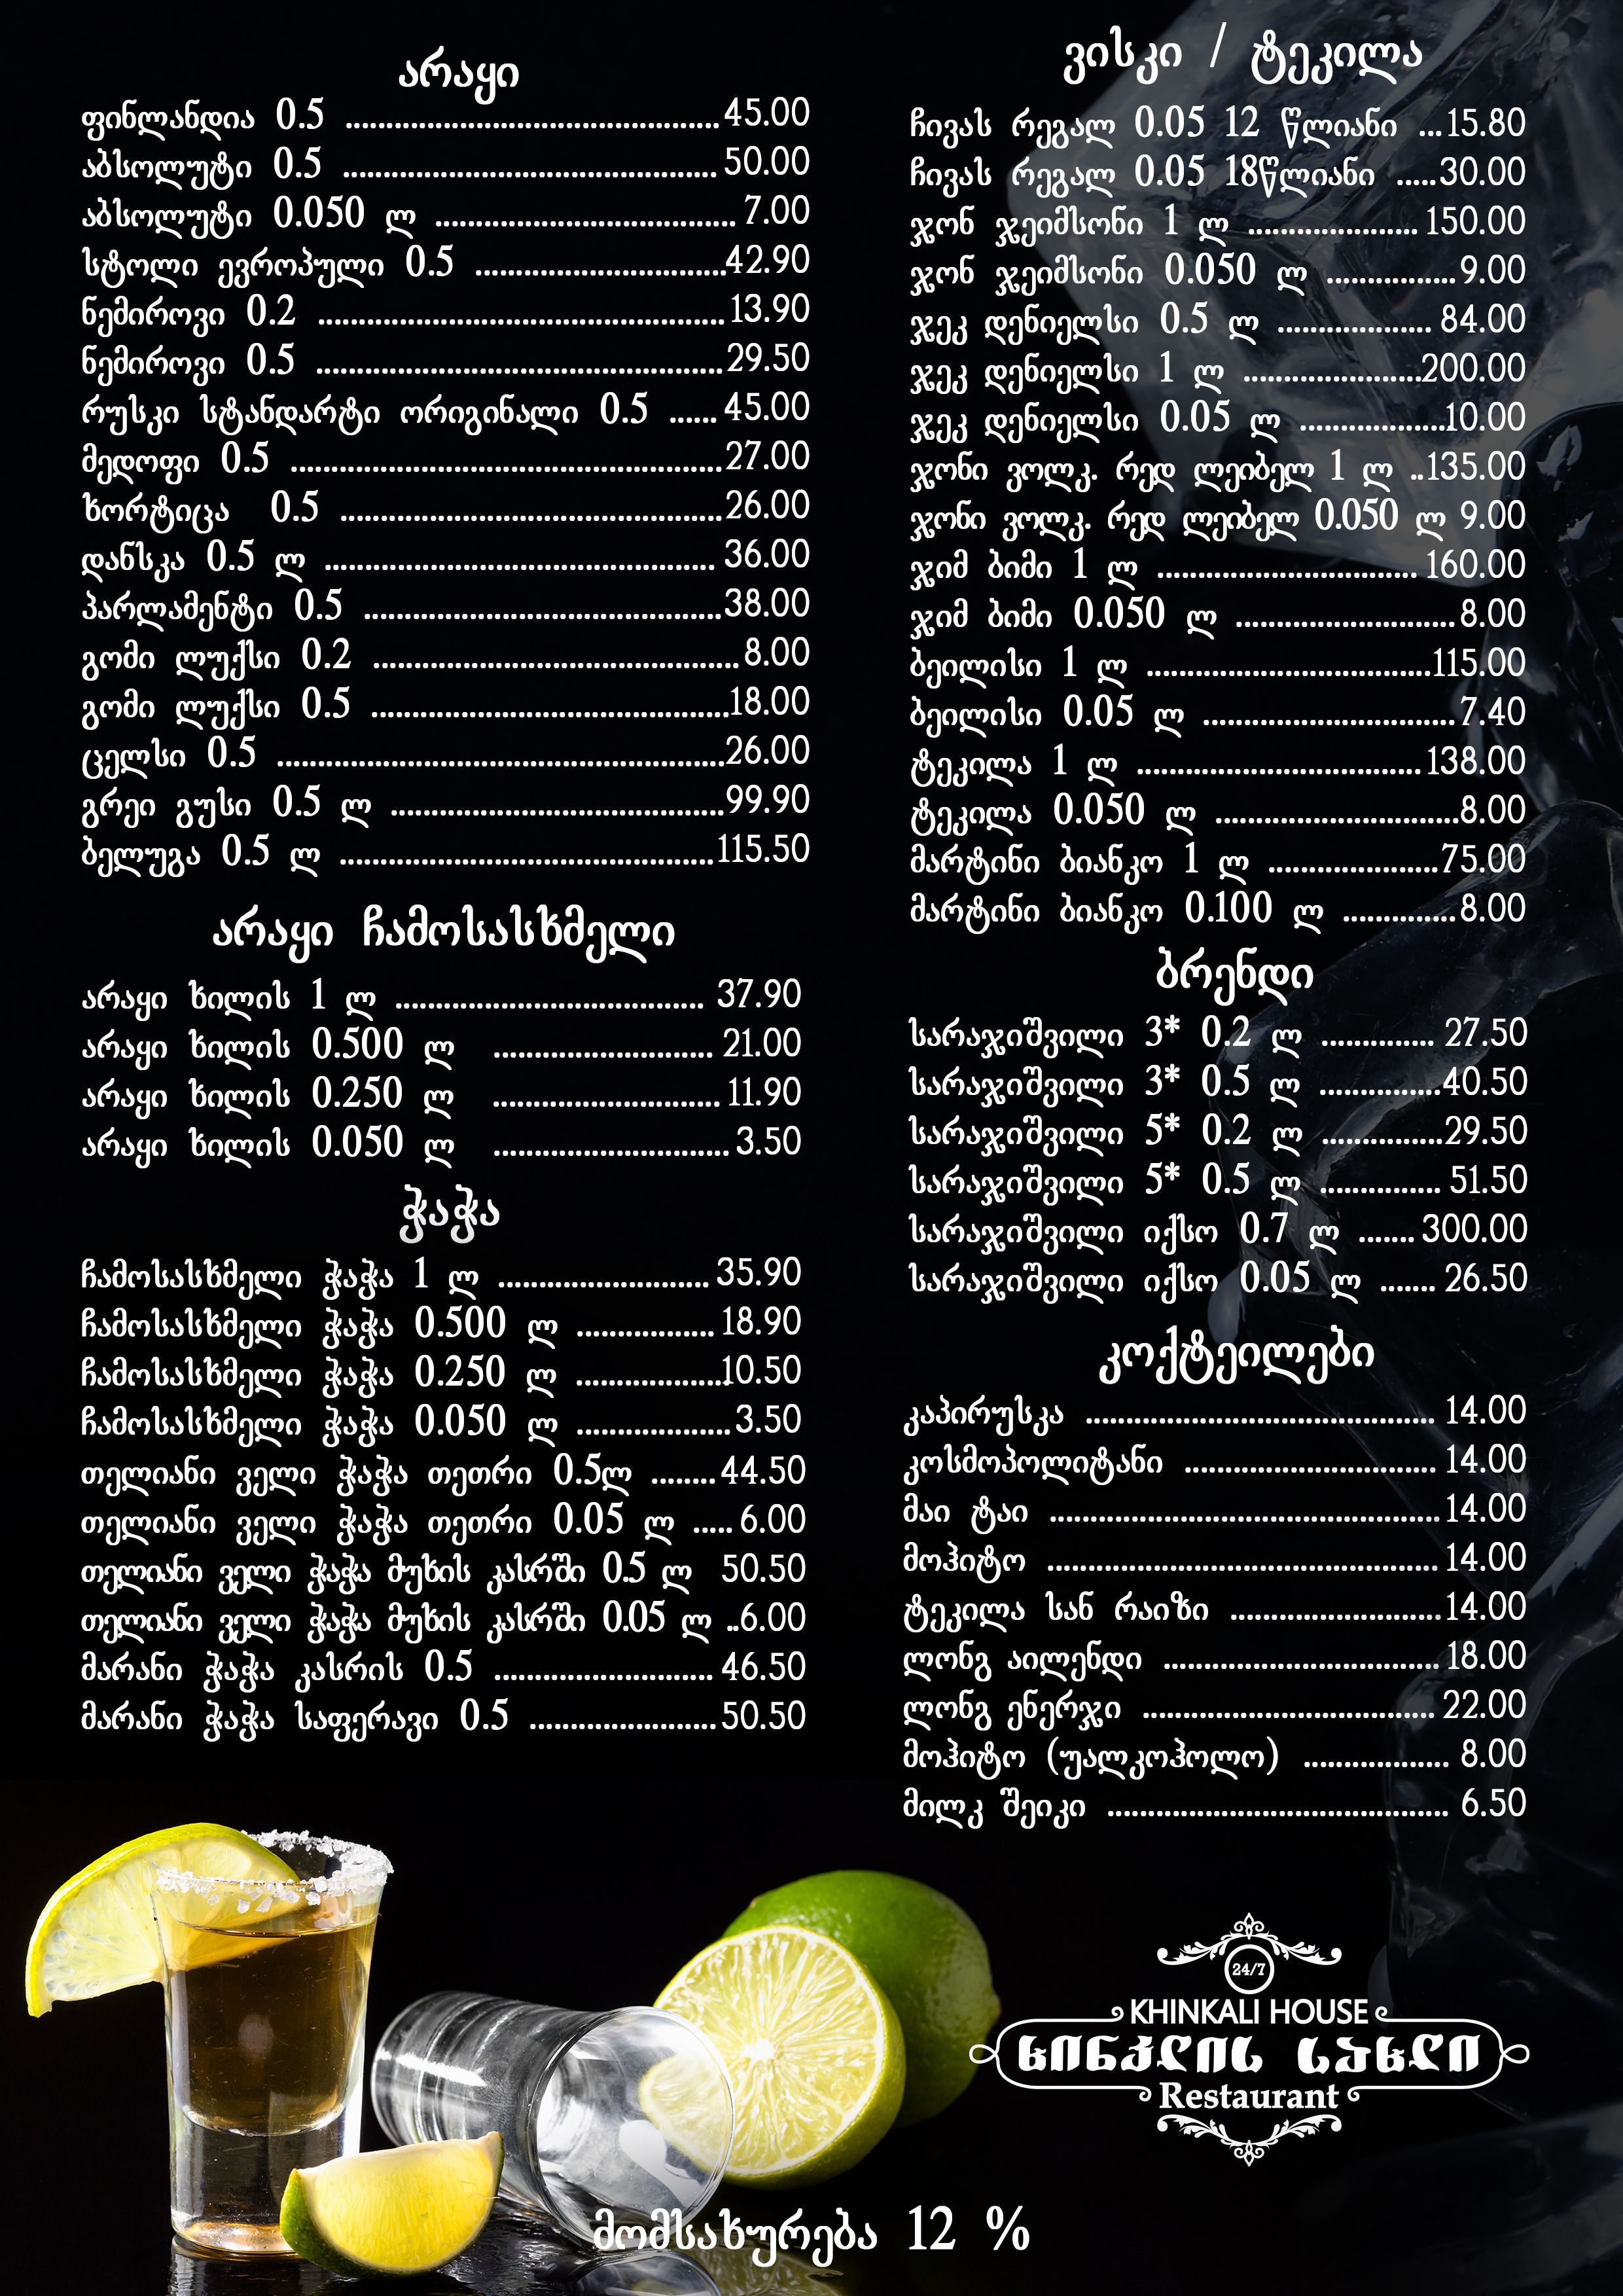 არაყი
ფინლანდია 0.5 .............................................. 45.00
აბსოლუტი 0.5 .............................................. 50.00
აბსოლუტი 0.050 ლ ..................................... 7.00
სტოლი ევროპული 0.5 ...............................42.90
ნემიროვი 0.2 .................................................. 13.90
ნემიროვი 0.5 .................................................. 29.50
რუსკი სტანდარტი ორიგინალი 0.5 ...... 45.00
მედოფი 0.5 .....................................................27.00
ხორტიცა 0.5 ...............................................26.00
დანსკა 0.5 ლ ................................................ 36.00
პარლამენტი 0.5 ............................................38.00
გომი ლუქსი 0.2 ............................................. 8.00
გომი ლუქსი 0.5 ............................................18.00
ცელსი 0.5 .......................................................26.00
გრეი გუსი 0.5 ლ .........................................99.90
ბელუგა 0.5 ლ ..............................................115.50
არაყი ჩამოსასხმელი
არაყი ხილის 1 ლ ...................................... 37.90
არაყი ხილის 0.500 ლ ........................... 21.00
არაყი ხილის 0.250 ლ ............................ 11.90
არაყი ხილის 0.050 ლ ............................. 3.50
ჭაჭა
ჩამოსასხმელი ჭაჭა 1 ლ .......................... 35.90
ჩამოსასხმელი ჭაჭა 0.500 ლ ................. 18.90
ჩამოსასხმელი ჭაჭა 0.250 ლ ...................10.50
ჩამოსასხმელი ჭაჭა 0.050 ლ ...................3.50
თელიანი ველი ჭაჭა თეთრი 0.5ლ ........44.50
თელიანი ველი ჭაჭა თეთრი 0.05 ლ ..... 6.00
თელიანი ველი ჭაჭა მუხის კასრში 0.5 ლ 50.50
თელიანი ველი ჭაჭა მუხის კასრში 0.05 ლ ..6.00
მარანი ჭაჭა კასრის 0.5 ........................... 46.50
მარანი ჭაჭა საფერავი 0.5 .......................50.50
ვისკი / ტეკილა
ჩივას რეგალ 0.05 12 წლიანი ...15.80
ჩივას რეგალ 0.05 18წლიანი .....30.00
ჯონ ჯეიმსონი 1 ლ ..................... 150.00
ჯონ ჯეიმსონი 0.050 ლ ................9.00
ჯეკ დენიელსი 0.5 ლ ................... 84.00
ჯეკ დენიელსი 1 ლ ......................200.00
ჯეკ დენიელსი 0.05 ლ ..................10.00
ჯონი ვოლკ. რედ ლეიბელ 1 ლ ..135.00
ჯონი ვოლკ. რედ ლეიბელ 0.050 ლ 9.00
ჯიმ ბიმი 1 ლ ................................ 160.00
ჯიმ ბიმი 0.050 ლ ...........................8.00
ბეილისი 1 ლ ...................................115.00
ბეილისი 0.05 ლ ...............................7.40
ტეკილა 1 ლ ................................... 138.00
ტეკილა 0.050 ლ ..............................8.00
მარტინი ბიანკო 1 ლ .....................75.00
მარტინი ბიანკო 0.100 ლ ..............8.00
ბრენდი
სარაჯიშვილი 3* 0.2 ლ .............. 27.50
სარაჯიშვილი 3* 0.5 ლ ...............40.50
სარაჯიშვილი 5* 0.2 ლ ...............29.50
სარაჯიშვილი 5* 0.5 ლ ............... 51.50
სარაჯიშვილი იქსო 0.7 ლ ....... 300.00
სარაჯიშვილი იქსო 0.05 ლ ....... 26.50
კოქტეილები
კაპირუსკა ........................................... 14.00
კოსმოპოლიტანი ............................... 14.00
მაი ტაი ................................................14.00
მოჰიტო ................................................ 14.00
ტეკილა სან რაიზი ..........................14.00
ლონგ აილენდი .................................. 18.00
ლონგ ენერჯი .................................... 22.00
მოჰიტო (უალკოჰოლო) .................. 8.00
მილკ შეიკი .......................................... 6.50
24/7
KHINKALI HOUSE
ხინკლის სახლი
Restaurant
მომსახურება 12 %